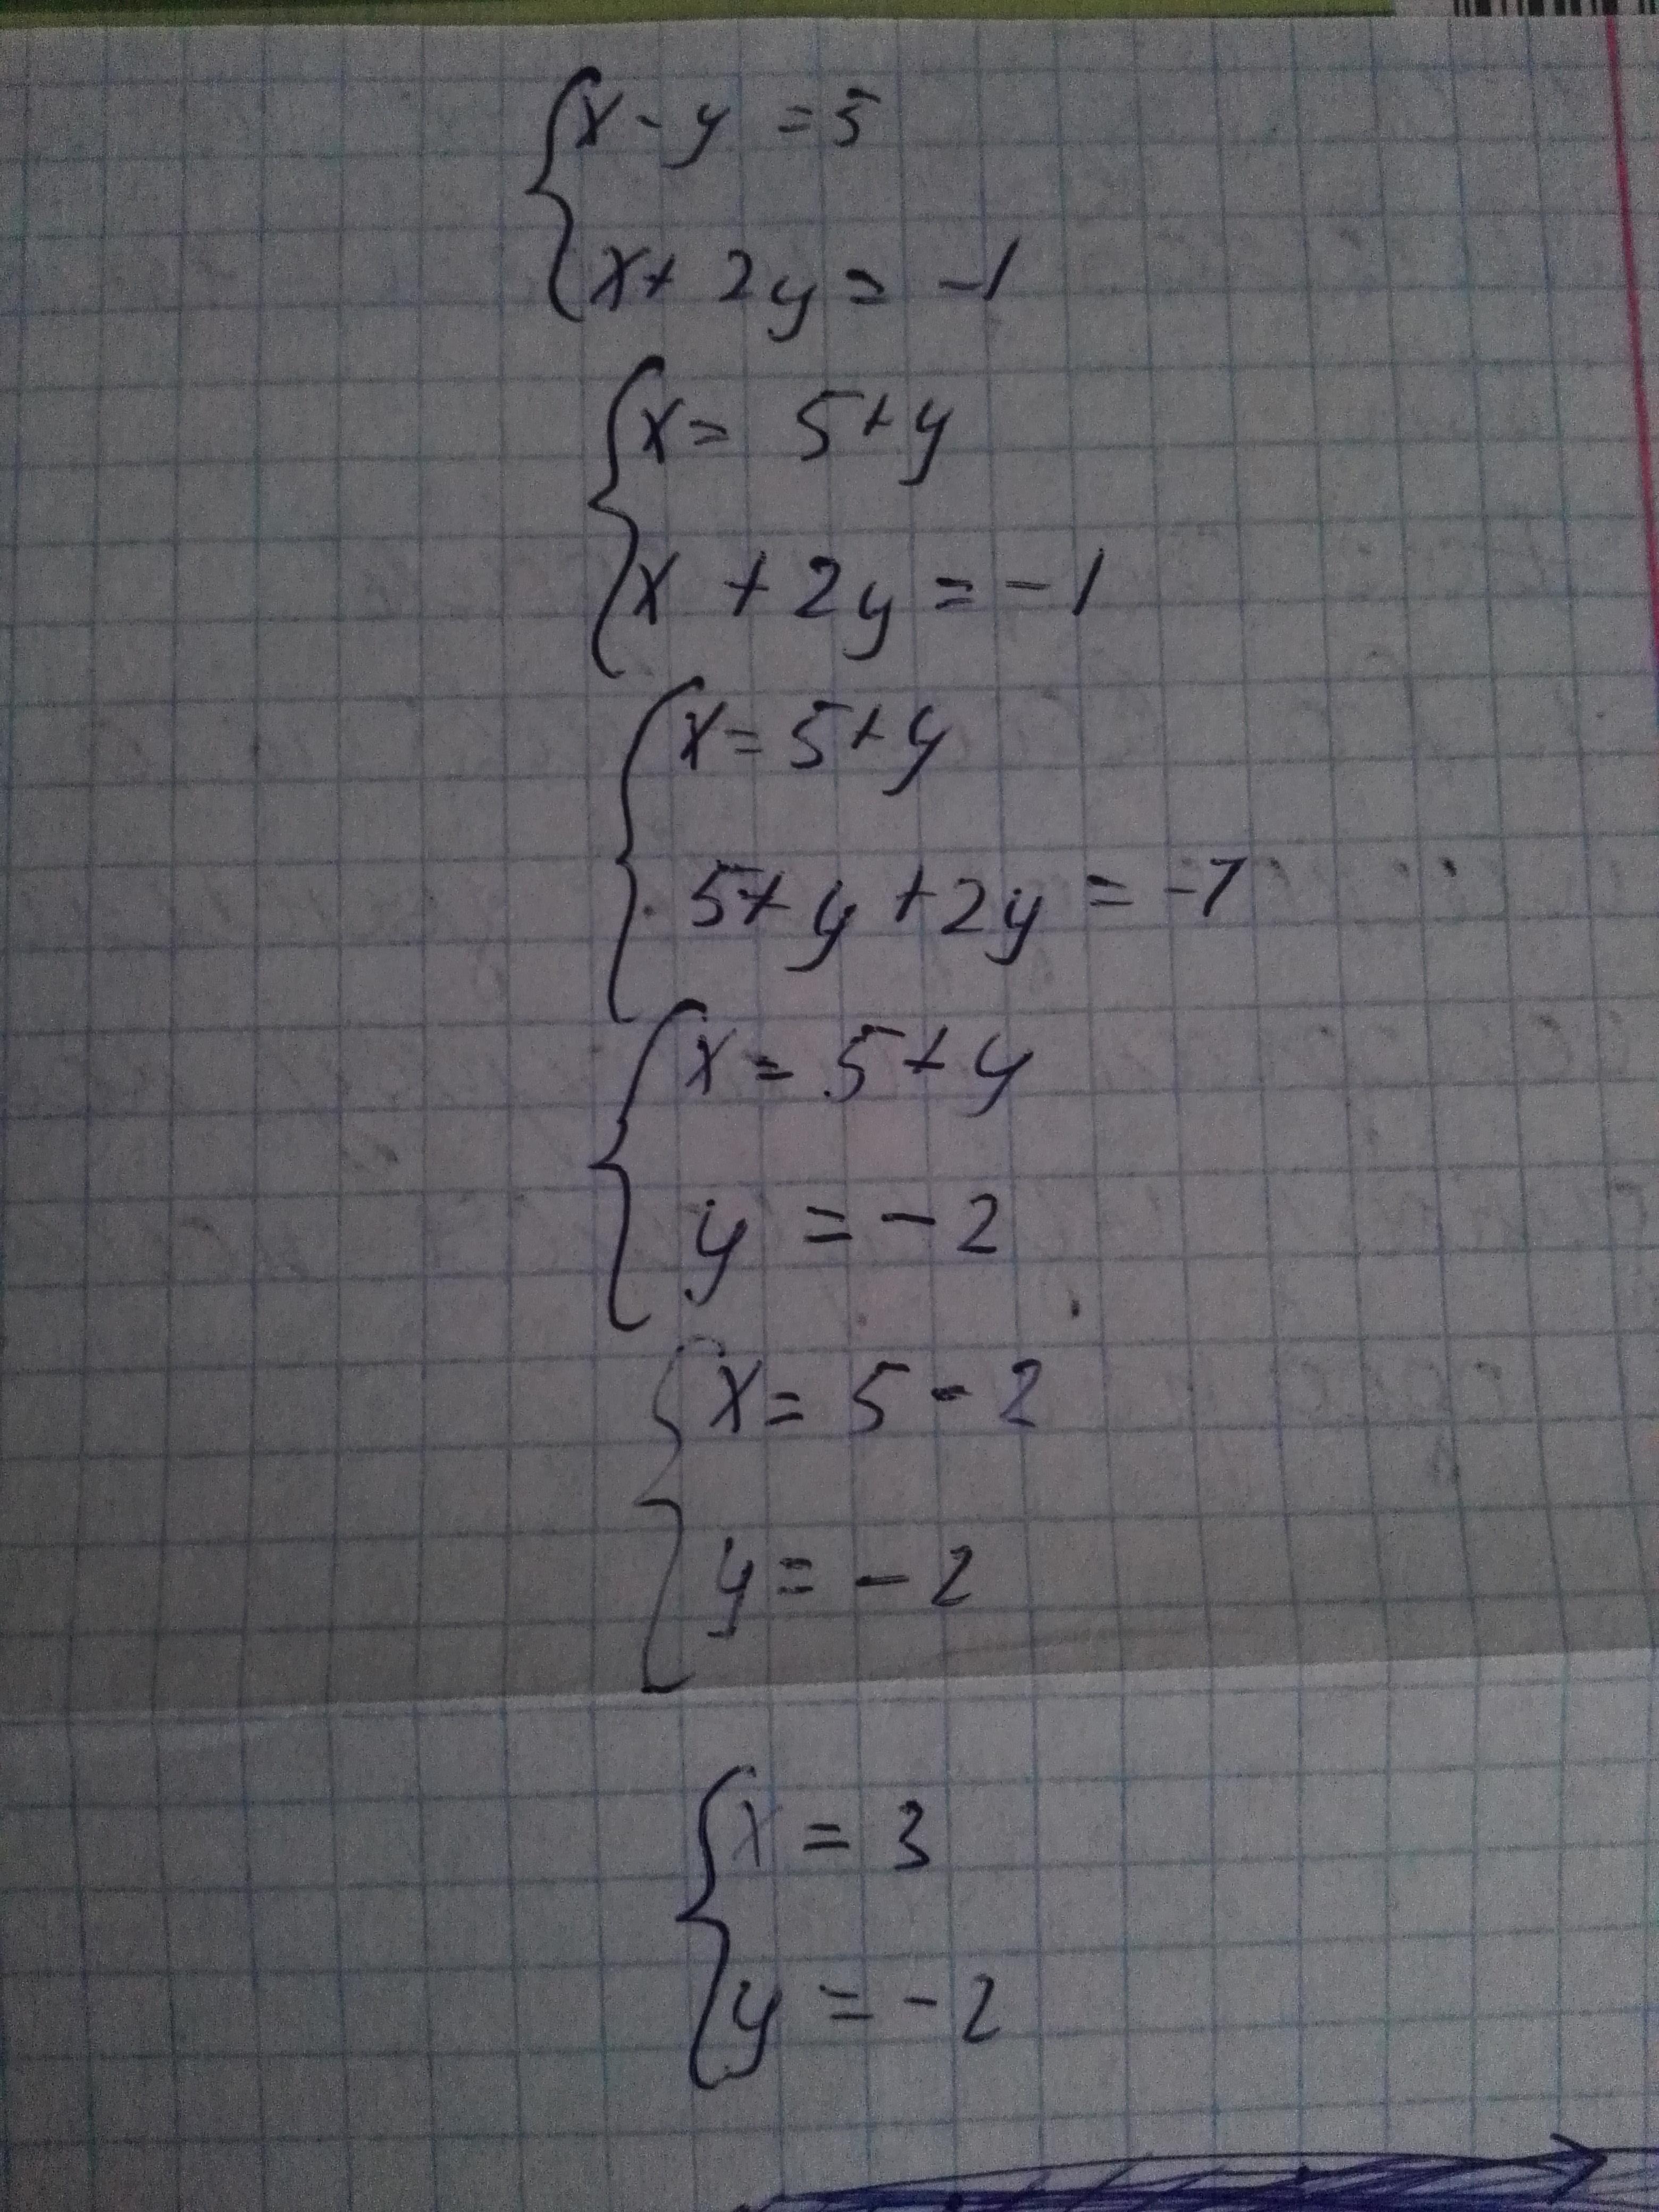 x - y = 5
x + 2y = -1
x = 5 + y
x + 2y = -1
x = 5 + y
5 + y + 2y = -1
x = 5 + y
y = -2
x = 5 - 2
y = -2
x = 3
y = -2